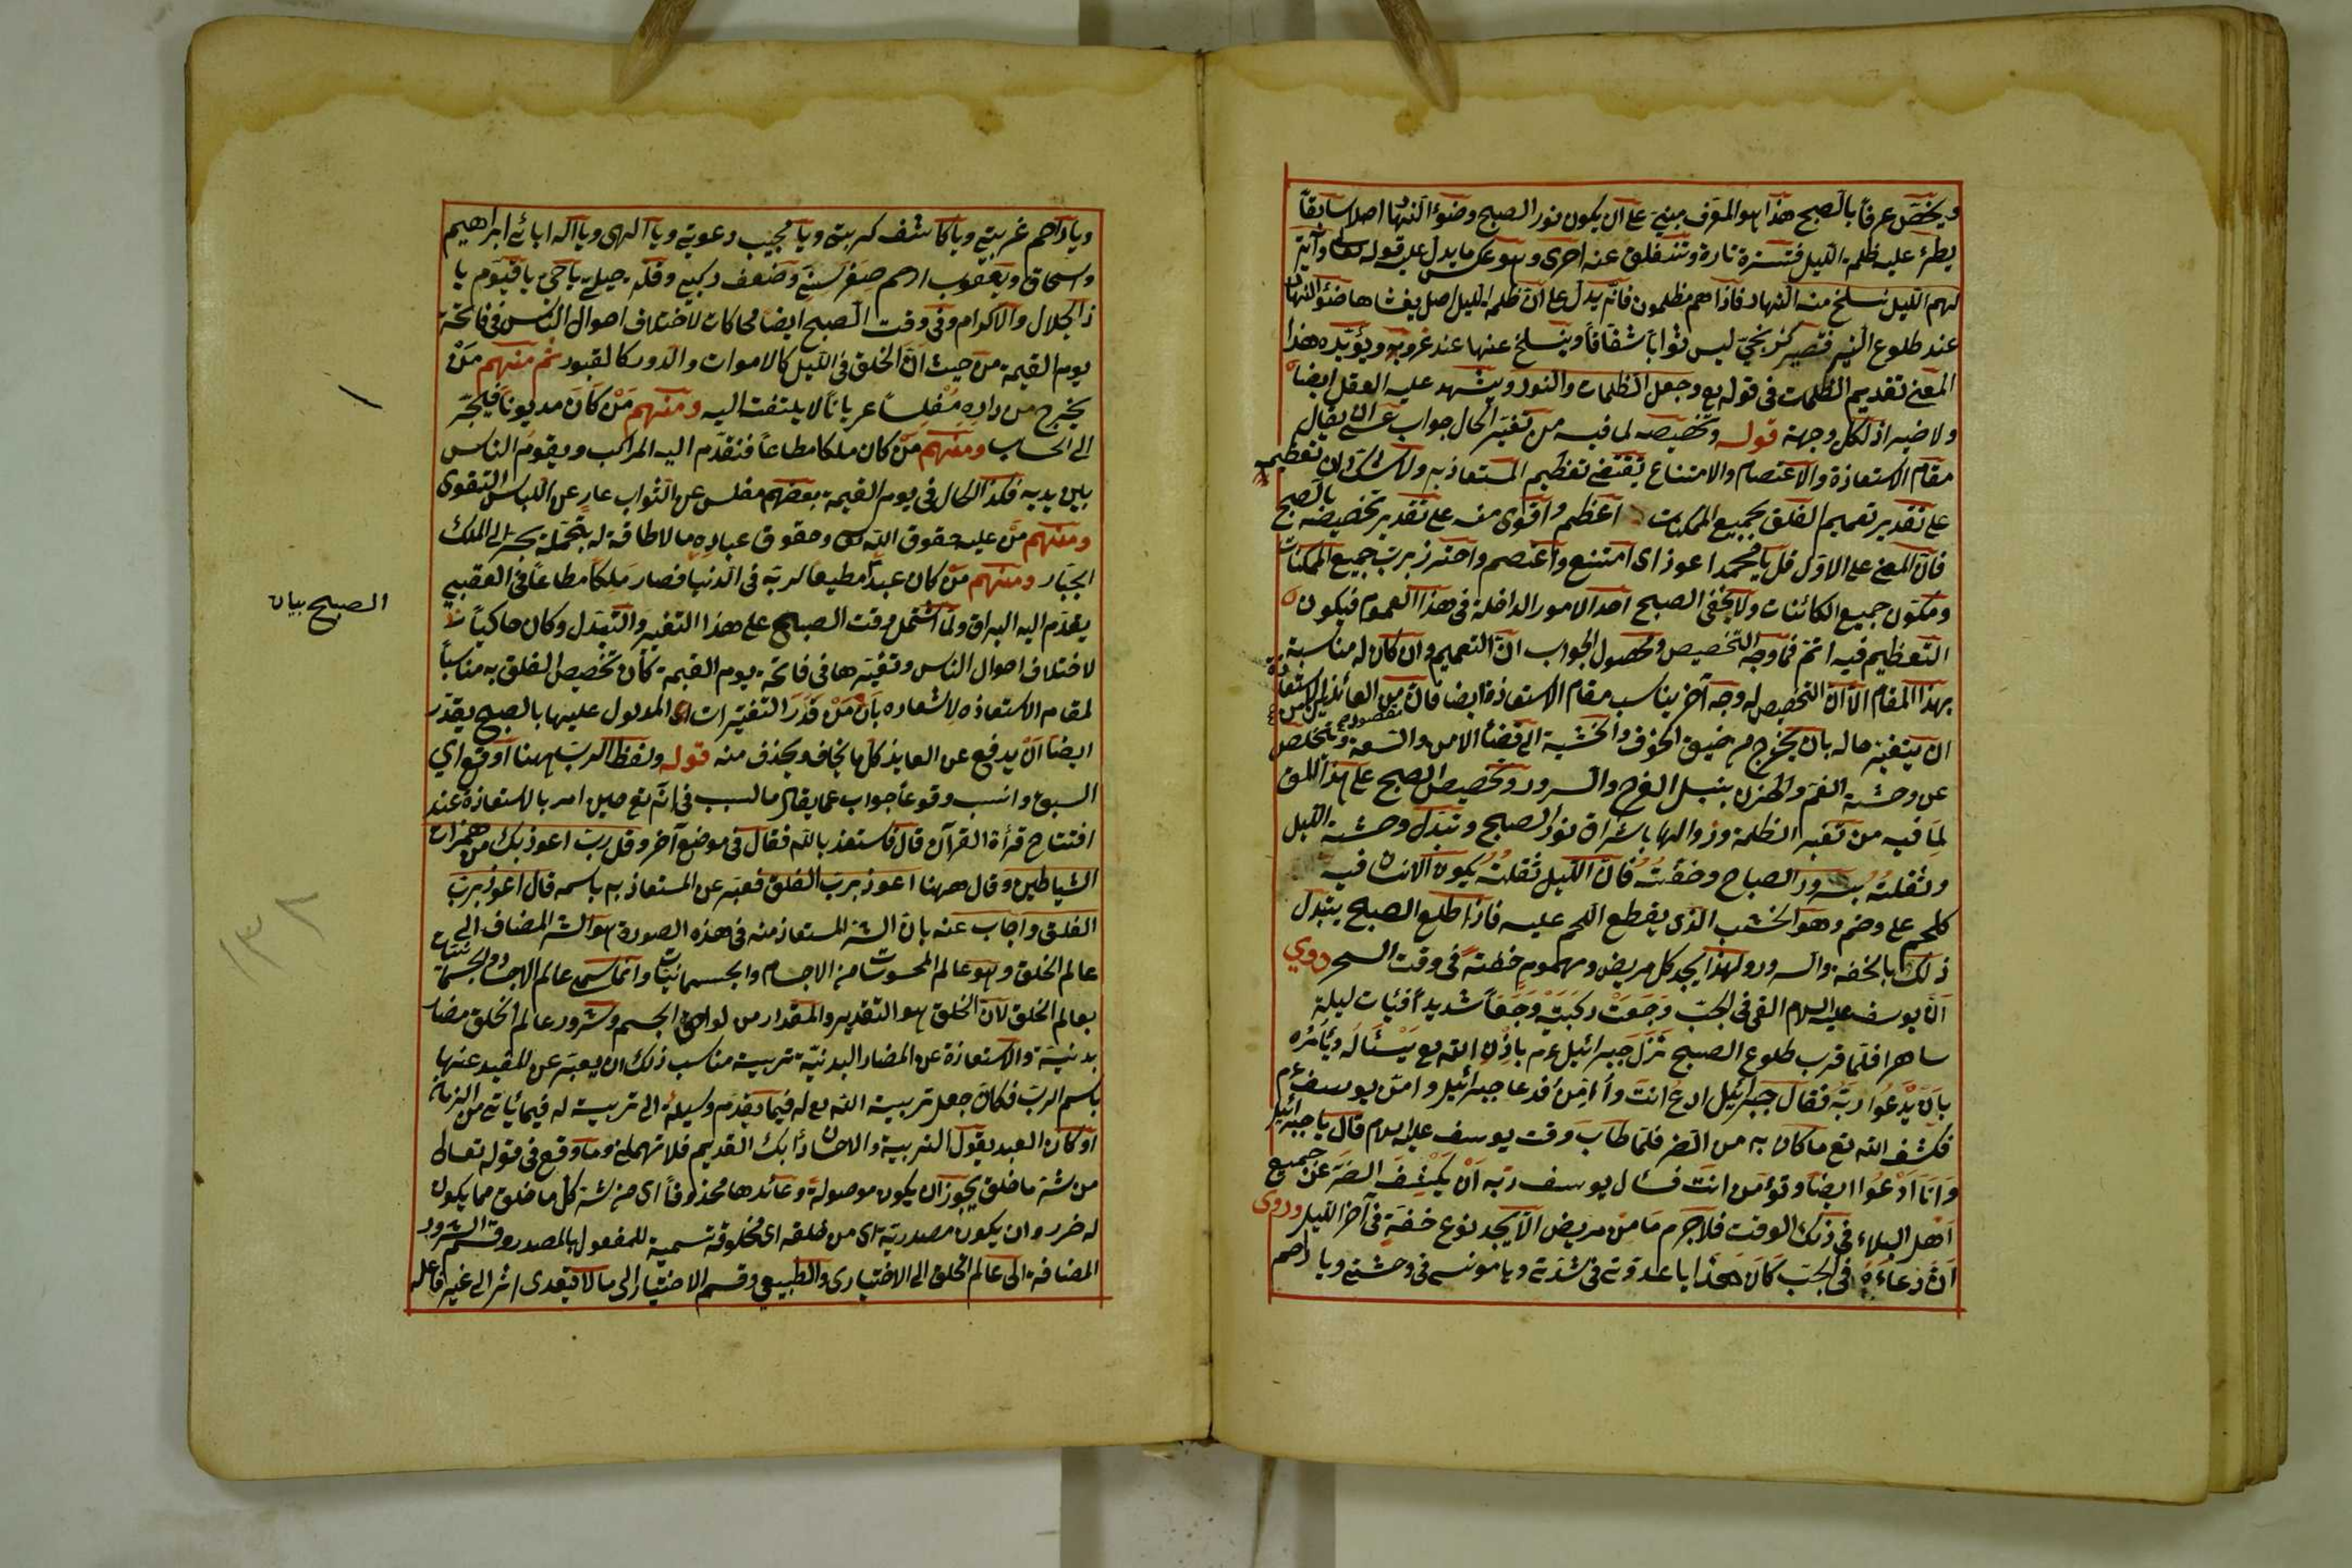 ويخص عرفاً بالصبح هذا هو المعرف مبنى على ان يكون نور الصبح وضوؤ النهار اصلا سابقاً
يطرء عليه ظلمة الليل فتستره تارة وتنفلق عنه اخرى وهو عكس ما يدل عليه قوله تعالى وآية
لهم الليل نسلخ منه النهار فاذا هم مظلمون فانه يدل على ان ظلمة الليل اصل يغشاها ضوؤ النهار
عند طلوع النير فتصير كزنجى ليس ثواباً شفافاً وينسلخ عنها عند غروبه ويؤيده هذا
المعنى تقديم الظلمات في قوله تع وجعل الظلمات والنور ويشهد عليه العقل ايضاً
ولا ضير اذ لكل وجهة قوله وتخصيصه لما فيه من تغير الحال جواب عسى يقال
مقام الاستعاذة والاعتصام والامتناع يقتضى تعظيم المستعاذ به ولا شك ان تعظيمه
على تقدير تعميم الفلق بجميع الممكنات اعظم واقوى منه على تقدير تخصيصه بالصبح
فان المعنى على الاول قل يا محمد اعوذ اى امتنع واعتصم واحترز برب جميع الممكنات
ومكون جميع الكائنات ولا يخفى الصبح احد الامور الداخلة في هذا العموم فيكون
التعظيم فيه اتم فما وجه التخصيص ومحصول الجواب ان التعميم وان كان له مناسبة
بهذا المقام الا ان التخصيص له وجه آخر يناسب مقام الاستعاذة ايضا فان من العائذين الاستعاذة
ان يتغير حاله بان يخرج من ضيق الخوف والخشية الى فضاء الامن والسعة ويتخلص
عن وحشة الغم والحزن بنيل الفرح والسرور وتخصيص الصبح على هذا للمن
لما فيه من تغير الظلمة وزوالها باشراق نور الصبح وتبدل وحشة الليل
وثقلته بسرور الصباح وخفته فان الليل ثقلته يكون الانسان فيه
كلحم على وضم وهو الخشب الذى يقطع اللحم عليه فاذا طلع الصبح يتبدل
ذلك بالخفة والسرور ولهذا يجد كل مريض ومهموم خفة في وقت السحر وروي
ان يوسف عليه السلام القى في الجب وجعت ركبته وجعاً شديداً فبات ليلة
ساهرا فلما قرب طلوع الصبح نزل جبرائيل عم باذن الله تع يسئاله ويأمره
بان يدعوا ربه فقال جبرائيل ادع انت وأُامن فدعا جبرائيل وامن يوسف عم
فكشف الله تع ما كان به من الضر فلما طاب وقت يوسف عليه السلام قال يا جبرائيل
وانا ادعوا ايضاً وتؤمن انت فسال يوسف ربه ان يكشف الضر عن جميع
اهل البلاء في ذلك الوقت فلا جرم ما من مريض الا يجد نوع خفة في آخر الليل وروى
ان دعاءه في الجب كان هكذا يا عدتى في شدتى ويا مونسى في وحشتى ويا راحم
ويا راحم غربتى ويا كاشف كربتى ويا مجيب دعوتى ويا الهى ويا اله ابائى ابراهيم
واسحاق ويعقوب ارحم صغر سنى وضعف ركبى وقلة حيلتى يا حى يا قيوم يا
ذا الجلال والاكرام وفى وقت الصبح ايضا محاكات لاختلاف احوال الناس في فاتحة
يوم القيمة من حيث ان الخلق فى الليل كالاموات والدور كالقبور ثم منهم من
يخرج من داره مفلساً عرياناً لا يلتفت اليه ومنهم من كان مديوناً فيجر
الى الحساب ومنهم من كان ملكا مطاعاً فتقدم اليه المراكب ويقوم الناس
بين يديه فكذا الحال في يوم القيمة بعضهم مفلس عن الثواب عارٍ عن اللباس التقوى
ومنهم من عليه حقوق الله تع وحقوق عباده ما لا طاقة له بتحمله يجر الى الملك
الجبار ومنهم من كان عبداً مطيعا لربه فى الدنيا فصار ملكاً مطاعاً فى العقبى
يقدم اليه البراق ولما اشتمل وقت الصبح على هذا التغير والتبدل وكان حاكياً
الصبح بيان
لاختلاف احوال الناس وتغيرها في فاتحة يوم القيمة كان تخصيص الفلق به مناسباً
لمقام الاستعاذه لاشعاره بان من قدر التغيرات المدلول عليها بالصبح يقدر
ايضا ان يدفع عن العايذ كل ما يخاف ويحذف منه قوله ولفظ الرب ههنا اوقع اي
اسبق وانسب وقوعاً جواب عما يقال ما السبب في انه تع حين امر بالاستعاذة عند
افتتاح قرأة القرآن قال فاستعذ بالله فقال في موضع آخر وقل رب اعوذ بك من همزات
الشياطين وقال ههنا اعوذ برب الفلق فعبر عن المستعاذ به باسمه قال اعوذ برب
الفلق واجاب عنه بان الشر المستعاذ منه في هذه الصورة هو الشر المضاف الى
١٣٨
عالم الخلق وهو عالم المحسوسات من الاجسام والجسمانيات وانما سمى عالم الاجساد والجسمانيات
بعالم الخلق لان الخلق هو التقدير والمقدار من لواحق الجسم وشرور عالم الخلق مضار
بدنية والاستعاذة عن المضار البدنية تربية مناسب ذلك ان يعبر عن المفيد عنها
باسم الرب فكان جعل تربية الله تع له فيما يقدم وسيلة الى تربية له فيما ياتى من الزمان
او كان العبد يقول التربية والاحسان دأبك القديم فلا تهملنى وما وقع في قوله تعالى
من شر ما خلق يجوز ان يكون موصولة وعائدها محذوفاً اى من شر كل ما خلق مما يكون
له ضرر وان يكون مصدرية اى من خلقه اى مخلوقه تسمية للمفعول بالمصدر وقسم الشرور
المضافة الى عالم الخلق الى الاختيارى والطبيعى وقسم الاختيار الى ما لا يتعدى اثر الى غير فاعله